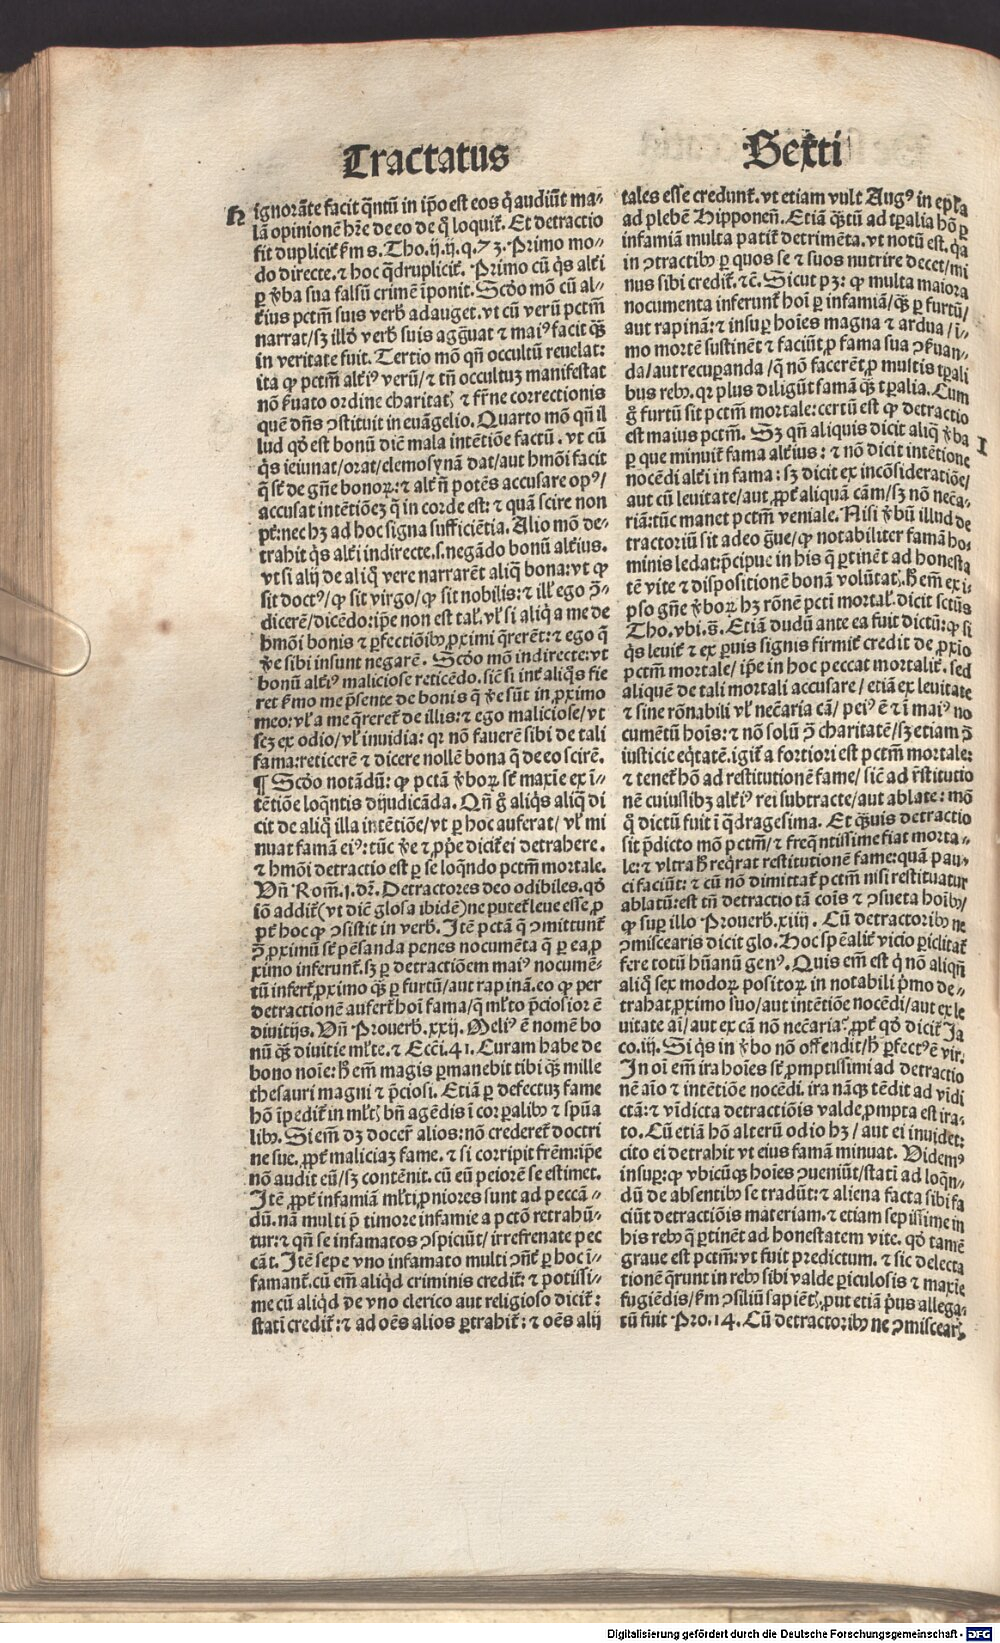 Tractatus
Sexti
H
ignorāte facit q̄ntū in ip̄o est eos q̇ audiūt ma-
lā opinionē hr̄e de eo de q̊ loquit̄. Et detractio
fit duplicit̄ ẜm s. Tho. ij. ij. q. 73. Primo mo-
do directe. ⁊ hoc q̄druplicit̄. Primo cū q̇s alt̄i
ꝑ v̄ba sua falsū crimē īponit. Scd̄o mō cū al-
t̄ius pctm̄ suis verb̄ adauget. vt cū verū pctm̄
narrat/sꝫ illd̄ verb̄ suis agḡuat ⁊ maiꝰ facit q̄ꝫ
in veritate fuit. Tertio mō qn̄ occultū reuelat:
ita ꝙ pctm̄ alt̄iꝰ verū/⁊ tn̄ occultuꝫ manifestat
nō ẜuato ordine charitatꝭ ⁊ fr̄ne correctionis
quē dn̄s ꝯstituit in euāgelio. Quarto mō qn̄ il
lud qd̄ est bonū diċ mala intētiōe factū. vt cū
q̇s ieiunat/orat/elemosynā dat/aut hmōi facit
q̄ st̄ de gn̄e bonoꝝ: ⁊ alt̄ n̄ potēs accusare opꝰ/
accusat intētiōeꝫ q̄ in corde est: ⁊ quā scire non
pt̄: nec hꝫ ad hoc signa sufficiētia. Alio mō de-
trahit q̇s alt̄i indirecte. s. negādo bonū alt̄ius.
vt si alij de aliq̊ vere narrarēt aliq̄ bona: vt ꝙ
sit doctꝰ/ꝙ sit virgo/ꝙ sit nobilis: ⁊ ill̄ ego ꝯ̄-
dicerē/dicēdo: ip̄e non est tal̄. vl̄ si aliq̄ a me de
hmōi bonis ⁊ ꝑfectiōibꝰ ꝓximi q̄rerēt: ⁊ ego q̄
v̄e sibi insunt negarē. Scd̄o mō indirecte: vt
bonū alt̄iꝰ maliciose reticēdo. sic̄ si int̄ aliq̄s fie
ret ẜmo me p̄sente de bonis q̄ v̄e sūt in ꝓximo
meo: vl̄ a me q̄reret̄ de illis: ⁊ ego maliciose/vt
scꝫ ex odio/vl̄ inuidia: qꝛ nō fauerē sibi de tali
fama: reticerē ⁊ dicere nollē bona q̄ de eo scirē.
¶ Scd̄o notādū: ꝙ pctā v̄boꝝ st̄ maxie ex ī-
tētiōe loq̄ntis dijudicāda. Qn̄ g̊ aliq̇s aliq̇ di
cit de aliq̊ illa intētiōe/vt ꝑ hoc auferat/vl̄ mi
nuat famā eiꝰ: tūc v̄e ⁊ ꝓp̄e dicit̄ ei detrahere.
⁊ hmōi detractio est ꝑ se loq̄ndo pctm̄ mortale.
Vn̄ Rom̄. j. dr̄. Detractores deo odibiles. qd̄
iō addit̄ (vt dic̄ glosa ibidē) ne putet̄ leue esse ꝓ
pt̄ hoc ꝙ ꝯsistit in verb̄. Itē pctā q̄ ꝯmittunt̄
ꝯ̄ ꝓximū st̄ pēsanda penes nocumēta q̄ ꝑ ea ꝓ
ximo inferunt̄. sꝫ ꝑ detractiōem maiꝰ nocumē-
tū infert̄ ꝓximo q̄ꝫ ꝑ furtū/aut rapinā. eo ꝙ per
detractionē aufert̄ hoī fama/q̄ ml̄to p̄ciosior ē
diuitijs. Vn̄ Prouerb̄. xxij. Meliꝰ ē nomē bo
nū q̄ꝫ diuitie ml̄te. ⁊ Ecci. 41. Curam habe de
bono noīe: h̄ em̄ magis ꝑmanebit tibi q̄ꝫ mille
thesauri magni ⁊ p̄ciosi. Etiā ꝑ defectuꝫ fame
hō īpedit̄ in ml̄tꝭ bn̄ agēdis ī corꝑalibꝰ ⁊ sp̄ūa
libꝰ. Si em̄ dꝫ docer̄ alios: nō crederet̄ doctri
ne sue. ꝓpt̄ maliciaꝫ fame. ⁊ si corripit fr̄em: ip̄e
nō audit eū/sꝫ contēnit. cū eū peiorē se estimet.
Itē ꝓpt̄ infamiā ml̄ti ꝓniores sunt ad peccā-
dū. nā multi p̄ timore infamie a pctō retrahū-
tur: ⁊ qn̄ se infamatos ꝯspiciūt/irrefrenate pec
cāt. Itē sepe vno infamato multi ꝯn̄t̄ ꝑ hoc ī-
famant̄. cū em̄ aliq̇d criminis credit̄: ⁊ potissi-
me cū aliq̇d de vno clerico aut religioso dicit̄:
statī credit̄: ⁊ ad oēs alios ꝑtrahit̄: ⁊ oēs alij
tales esse credunt̄. vt etiam vult Augꝰ in epl̄a
ad plebē Hipponeñ. Etiā q̄ꝫtū ad tꝑalia hō ꝑ
infamiā multa patit̄ detrimēta. vt notū est. q̇a
in ꝯtractibꝰ ꝑ quos se ⁊ suos nutrire decet/mi
nus sibi credit̄. ⁊c̄. Sicut pꝫ: ꝙ multa maiora
nocumenta inferunt̄ hoī ꝑ infamiā/q̄ꝫ ꝑ furtū/
aut rapinā: ⁊ insuꝑ hoīes magna ⁊ ardua/ī-
mo mortē sustinēt ⁊ faciūt ꝓ fama sua ꝯẜuan-
da/aut recuꝑanda/q̄ nō facerēt ꝓ multis tꝑali
bus rebꝰ. qꝛ plus diligūt famā q̄ꝫ tꝑalia. Cum
g̊ furtū sit pctm̄ mortale: certū est ꝙ detractio
est maius pctm̄. Sꝫ qn̄ aliquis dicit aliq̄ v̄ba
I
ꝑ que minuit̄ fama alt̄ius: ⁊ nō dicit intētione
nocēdi alt̄i in fama: sꝫ dicit ex incōsideratiōe/
aut cū leuitate/aut ꝓpt̄ aliquā cām/sꝫ nō nec̄a-
riā: tūc manet pctm̄ veniale. Nisi v̄bū illud de
tractoriū sit adeo ḡue/ꝙ notabiliter famā ho-
minis ledat: p̄cipue in his q̄ ꝑtinēt ad honesta
tē vite ⁊ dispositionē bonā volūtatꝭ. h̄ em̄ ex i-
pso gn̄e v̄boꝝ hꝫ rōnē pcti mortal̄. dicit sctūs
Tho. vbi. s̄. Etiā dudū ante ea fuit dictū: ꝙ si
q̇s leuit̄ ⁊ ex ꝑuis signis firmit̄ credit de ꝓxio
pctm̄ mortale/ip̄e in hoc peccat mortalit̄. sed
aliquē de tali mortali accusare/etiā ex leuitate
⁊ sine rōnabili vl̄ nec̄aria cā/peiꝰ ē ⁊ ī maiꝰ no
cumētū hoīs: ⁊ nō solū ꝯ̄ charitatē/sꝫ etiam ꝯ̄
iusticie eq̇tatē. igit̄ a fortiori est pctm̄ mortale:
⁊ tenet̄ hō ad restitutionē fame/sic̄ ad r̄stitutio
nē cuiuslibꝫ alt̄iꝰ rei subtracte/aut ablate: mō
q̊ dictū fuit ī q̄dragesima. Et q̄ꝫuis detractio
sit p̄dicto mō pctm̄/⁊ freq̄ntissime fiat morta-
le: ⁊ vltra h̄ reqrat restitutionē fame: quā pau-
ci faciūt: ⁊ cū nō dimittat̄ pctm̄ nisi restituatur
ablatū: est tn̄ detractio tā cōis ⁊ ꝯsueta hoībꝰ/
ꝙ suꝑ illo Prouerb̄. xiiij. Cū detractoribꝰ ne
ꝯmiscearis dicit glo. Hoc sp̄ealit̄ vicio ꝑiclitat̄
fere totū hūanū genꝰ. Quis em̄ est q̇ nō aliqn̄
aliq̊ sex modoꝝ positoꝝ in notabili p̄mo de-
trahat ꝓximo suo/aut intētiōe nocēdi/aut ex le
uitate aī/aut ex cā nō nec̄aria: ꝓpt̄ qd̄ dicit̄ Ja
co. iij. Si q̇s in v̄bo nō offendit/h̄ ꝑfectꝰ ē vir.
In oī em̄ ira hoīes st̄ ꝓmptissimi ad detractio
nē aīo ⁊ intētiōe nocēdi. ira nāq̄ꝫ tēdit ad vidi
ctā: ⁊ vīdicta detractiōis valde ꝓmpta est ira-
to. Cū etiā hō alterū odio hꝫ/aut ei inuidet:
cito ei detrahit vt eius famā minuat. Videmꝰ
insuꝑ: ꝙ vbicūqꝫ hoīes ꝯueniūt/statī ad loq̄n-
dū de absentibꝰ se tradūt: ⁊ aliena facta sibi fa
ciūt detractiōis materiam. ⁊ etiam sepissime in
his rebꝰ q̄ ꝑtinēt ad honestatem vite. qd̄ tamē
graue est pctm̄: vt fuit predictum. ⁊ sic delecta
tionē q̄runt in rebꝰ sibi valde ꝑiculosis ⁊ maxie
fugiēdis/ẜm ꝯsiliū sapiētꝭ. ꝓut etiā p̄us allega-
tū fuit Pro. 14. Cū detractoribꝰ ne ꝯmiscearꝭ.
Digitalisierung gefördert durch die Deutsche Forschungsgemeinschaft - DFG